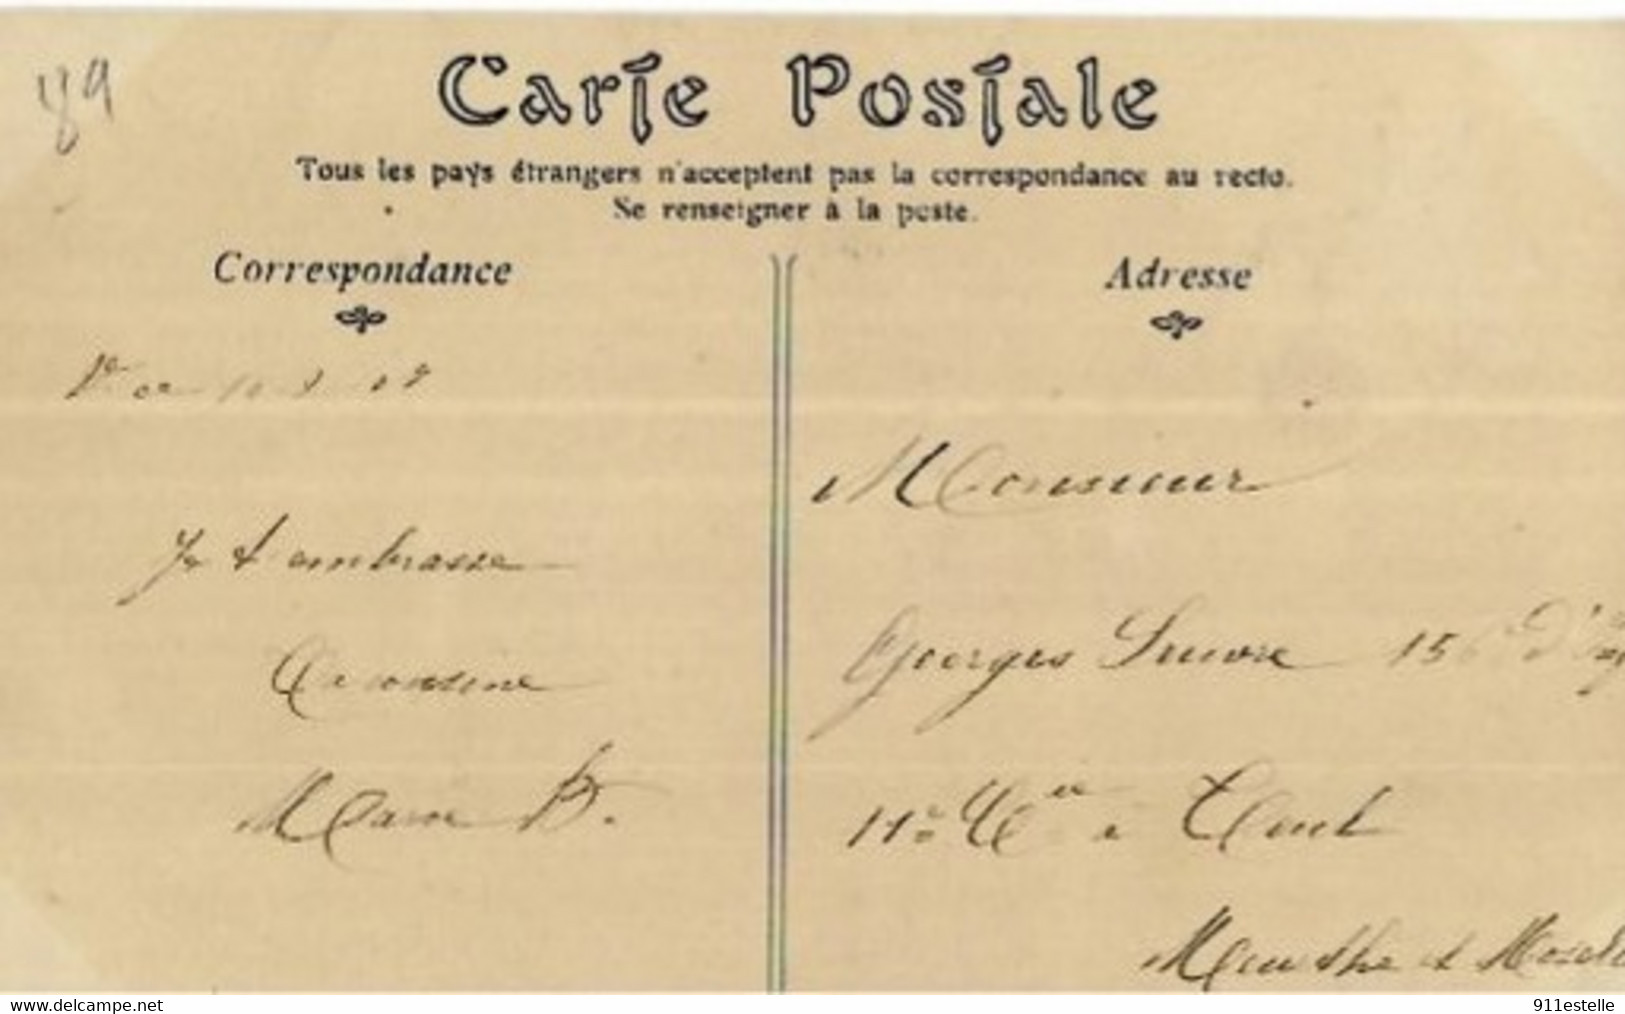 89
Carte Postale
Tous les pays étrangers n'acceptent pas la correspondance au recto.
Se renseigner à la poste.
Correspondance
Adresse
Je t'embrasse
Ta cousine
B.
Monsieur
Georges 156
11e Cie à Toul
Meurthe & Moselle
delcampe.net
911estelle